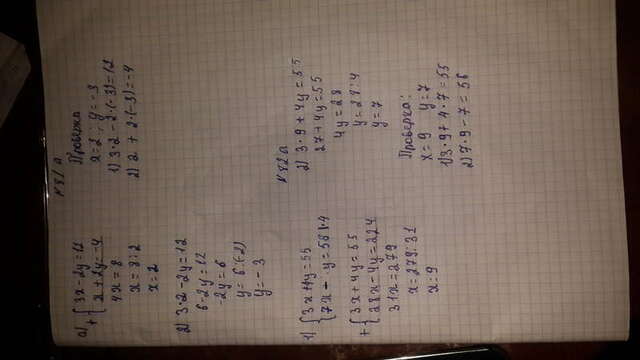 №81 а
а) + { 3x-2y=12
x+2y=-4
4x=8
x=8:2
x=2
2) 3·2-2y=12
6-2y=12
-2y=6
y=6:(-2)
y=-3
Проверка
x=2; y=-3
1) 3·2-2·(-3)=12
2) 2+2·(-3)=-4
№82 а
1) { 3x+4y=55
7x-y=56 |·4
+ { 3x+4y=55
28x-4y=224
31x=279
x=279:31
x=9
2) 3·9+4y=55
27+4y=55
4y=28
y=28:4
y=7
Проверка:
x=9 y=7
1) 3·9+4·7=55
2) 7·9-7=56